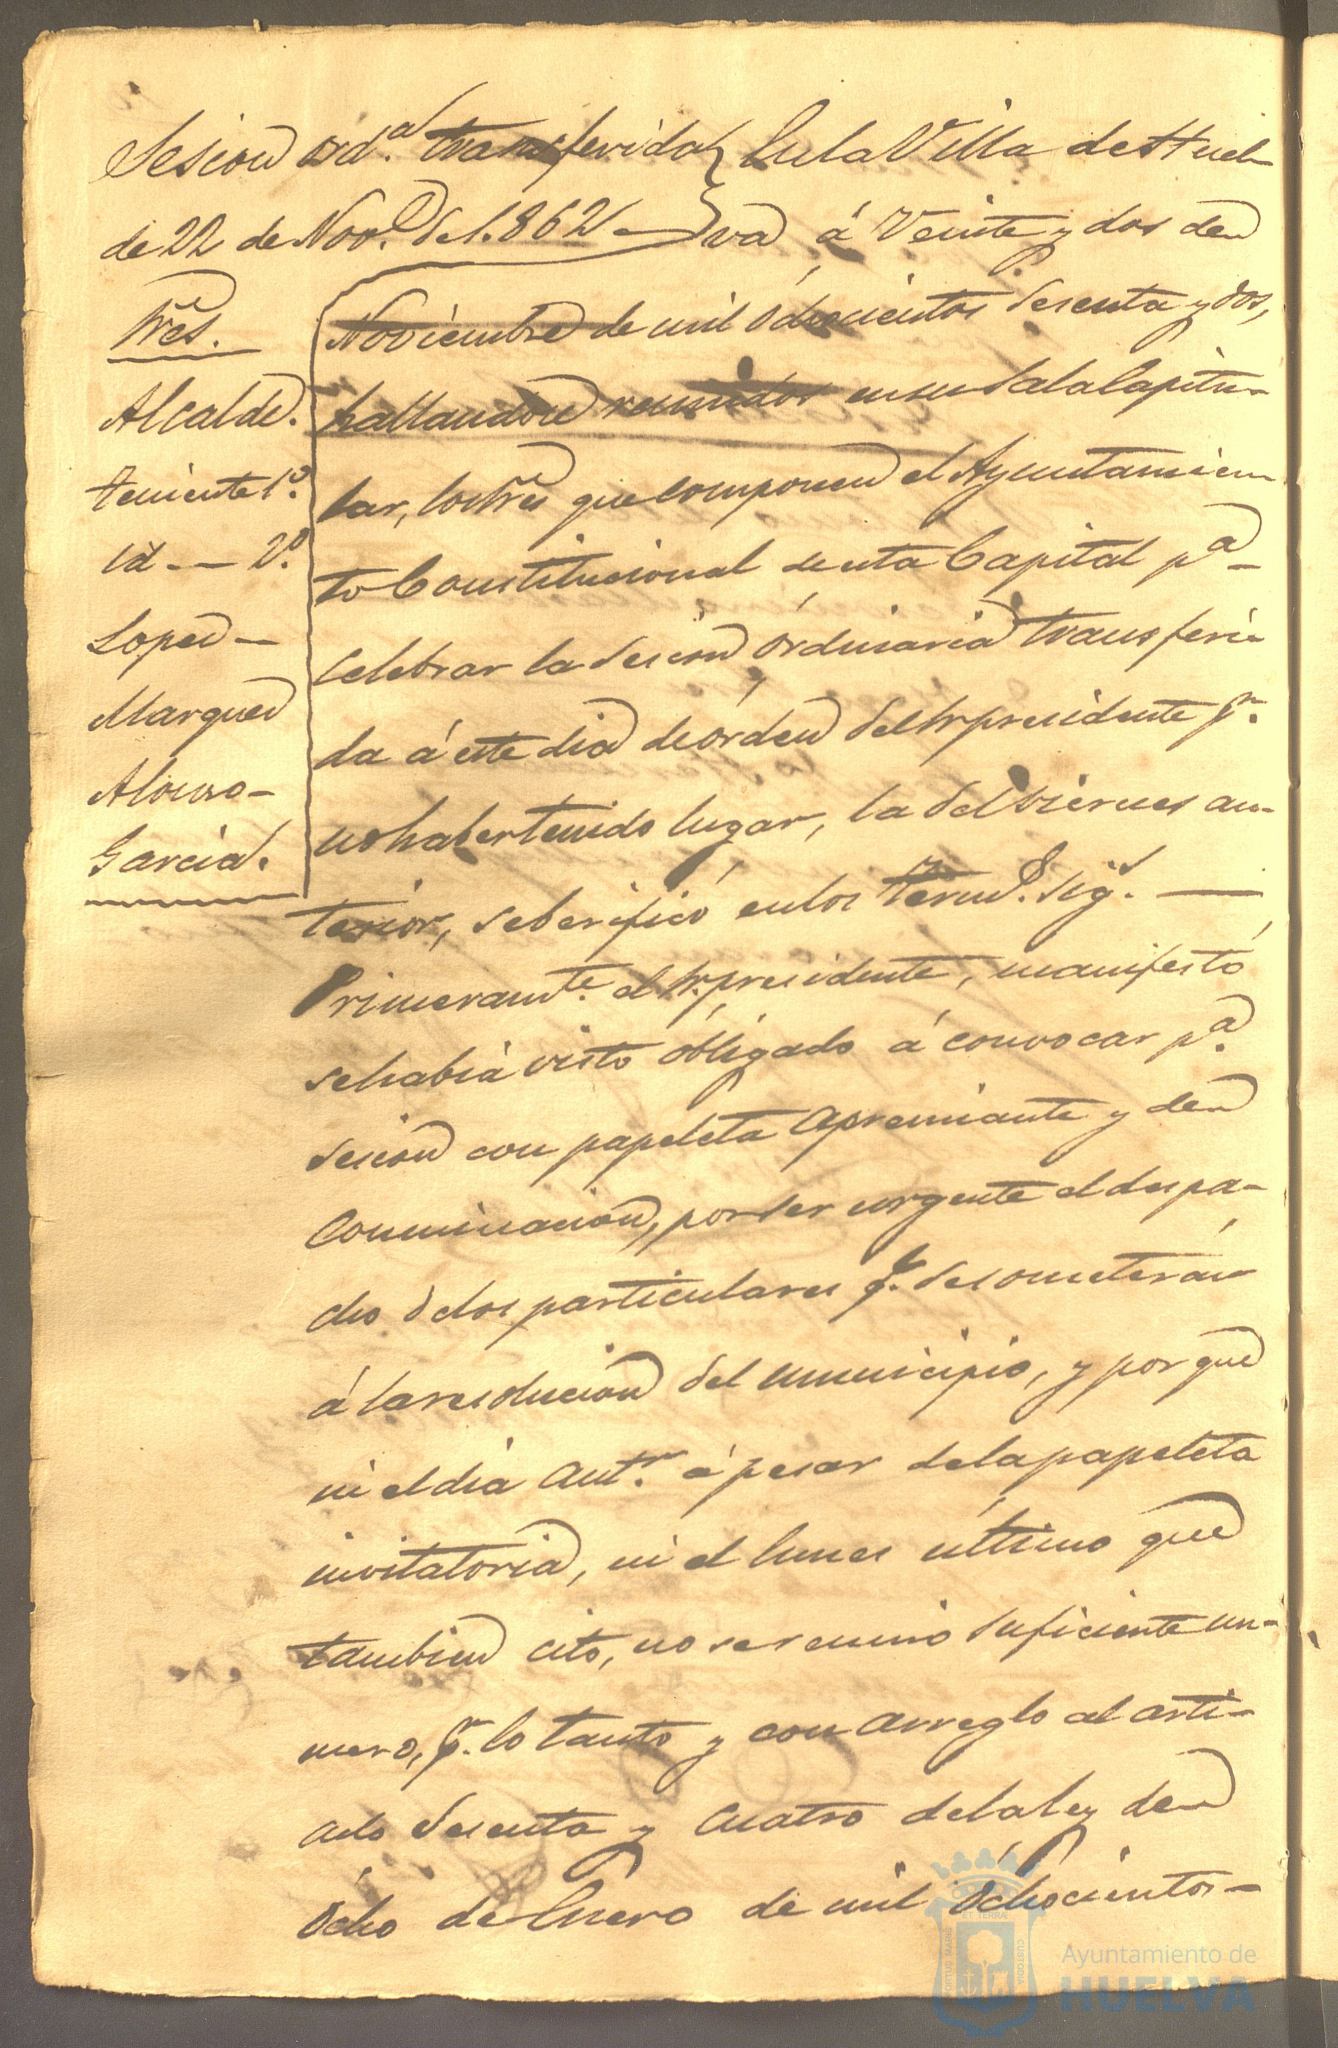 Sesion ord.ª transferida
de 22 de Nov.e del.862
Sres.
Alcalde.
teniente 1º.
id — 2º.
Lopez —
Marquez
Alonso —
Garcia.
En la Villa de Huel-
va á Veinte y dos de
Noviembre de mil ochocientos sesenta y dos,
hallandose reunidos en su Sala Capitu-
lar, los Sres que componen el Ayuntamien-
to Constitucional de esta Capital pª —
celebrar la sesion órdinaria transferi-
da á este dia de órden del Sr presidente pr.
no haber tenido lugar, la del viernes an-
terior, se berificó en los term.s sig.s —
Primeramte. el Sr. presidente, manifestó
se habia visto óbligado á convocar pª.
sesion con papeleta apremiante y de
conminacion, por ser urgente el despa-
cho de los particulares q.e se someterán
á la resolucion del municipio, y por que
ni el dia antr. á pesar de la papeleta
invitatoria, ni el lunes último que
tambien citó, no se reunió suficiente nú-
mero, pr. lo tanto y con arreglo al arti-
culo sesenta y cuatro de la ley de
ócho de Enero de mil óchocientos —
Ayuntamiento de
HUELVA